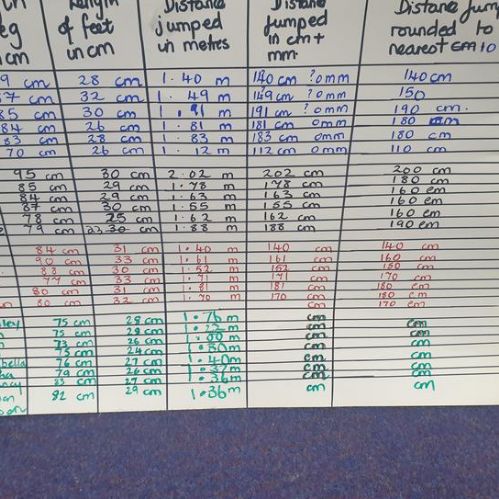 Length of feet in cm Distance jumped in metres Distance jumped in cm + mm Distance jump rounded to nearest cm 10
eg
cm
9 cm 28 cm 1.40 m 140 cm ?0mm 140cm
37 cm 32 cm 1.49 m 149 cm ?0mm 150
85 cm 30 cm 1.91 m 191 cm ?0mm 190 cm.
84 cm 26 cm 1.81 m 181 cm 0mm 180 cm
83 cm 28 cm 1.83 m 183 cm 0mm 180 cm
70 cm 26 cm 1.12 m 112 cm 0mm 110 cm
95 cm 30 cm 2.02 m 202 cm 200 cm
85 cm 29 cm 1.78 m 178 cm 180 cm
84 cm 29 cm 1.63 m 163 cm 160 cm
87 cm 30 cm 1.55 m 155 cm 160 cm
78 cm 25 cm 1.62 m 162 cm 160 cm
79 cm 22.30 cm 1.88 m 188 cm 190 cm
84 cm 31 cm 1.40 m 140 cm 140 cm
90 cm 33 cm 1.61 m 161 cm 160 cm
88 cm 30 cm 1.52 m 152 cm 150 cm
77 cm 33 cm 1.71 m 171 cm 170 cm
80 cm 31 cm 1.81 m 181 cm 180 cm
80 cm 32 cm 1.70 m 170 cm 170 cm
ley 75 cm 28 cm 1.76 m cm cm
75 cm 29 cm m cm cm
73 cm 26 cm 1.00 m cm cm
75 cm 24 cm m cm cm
bella 76 cm 27 cm 1.40m cm cm
79 cm 26 cm 1.37 m cm cm
ncy 85 cm 27 cm 1.36 m cm cm
82 cm 29 cm 1.36m cm cm